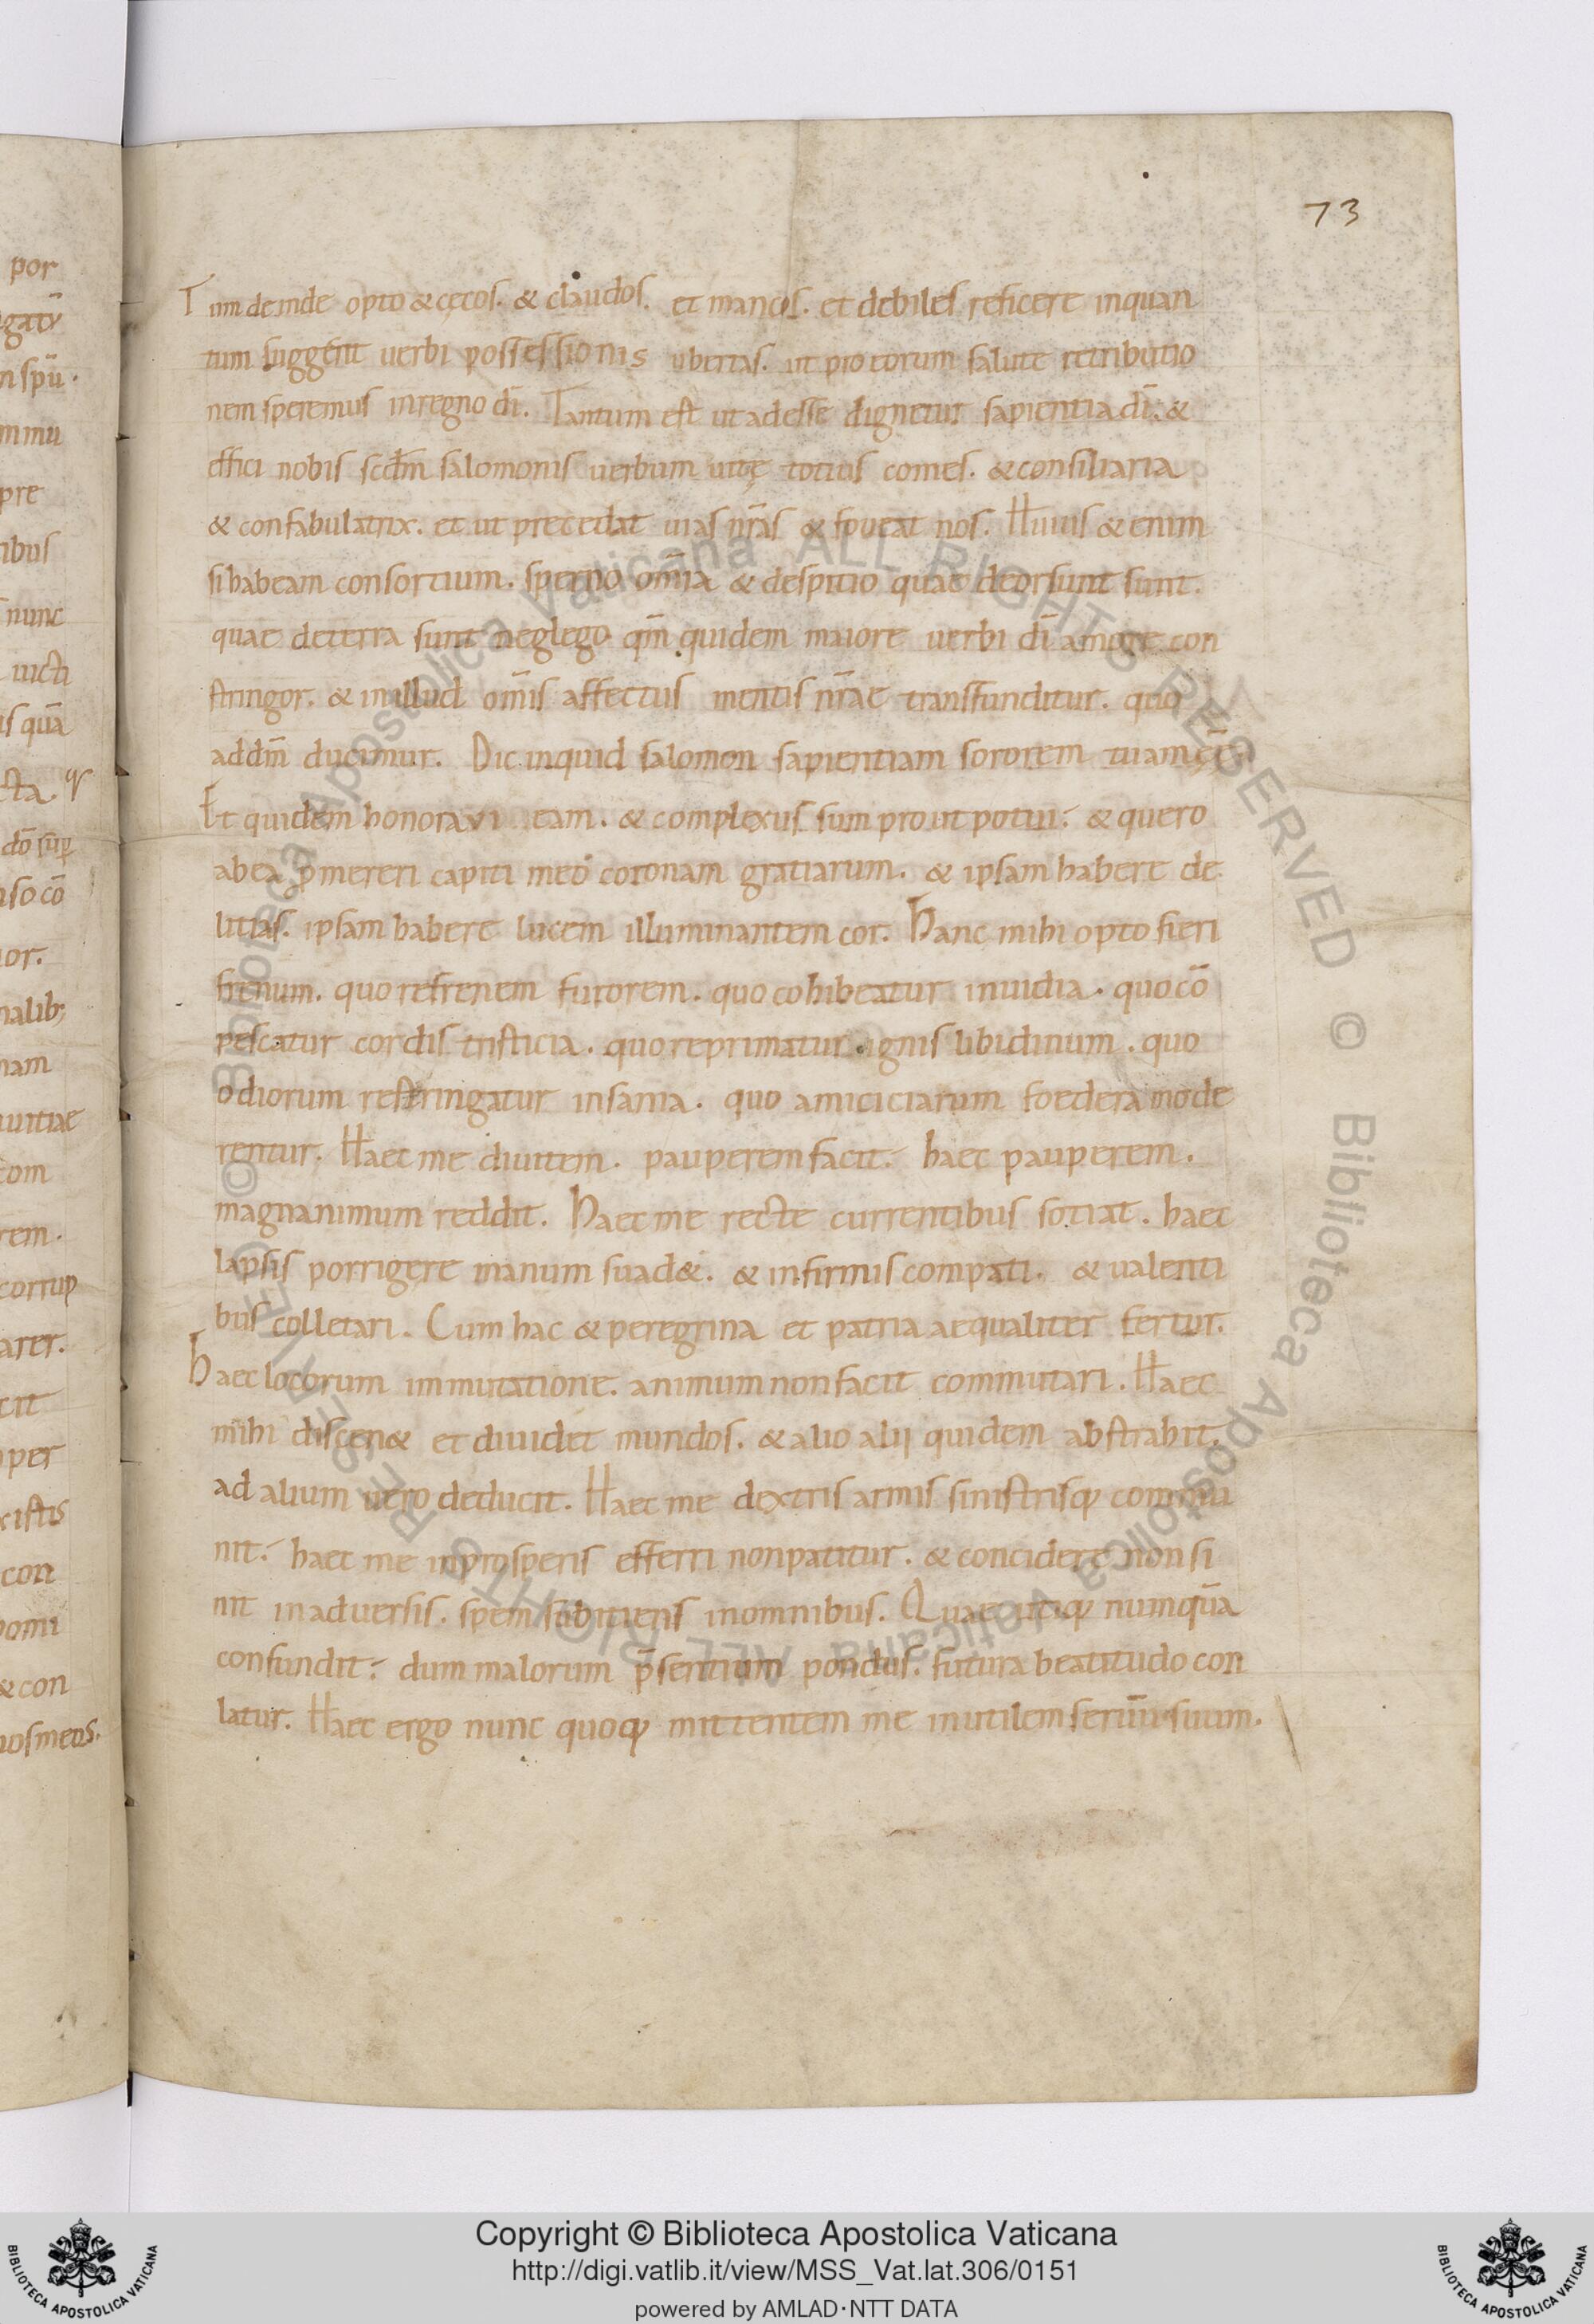 por
gat᷑
n spū.
m mu
pre
ibus
nunc
uicti
is quā
cta.
dō sup̄
nso cō
or.
nalib;
nam
uitiae
com
rem.
corrup
arer.
cit
per
xistis
con
pomi
& con
nos meos.
73
Tum deinde opto & cęcos. & claudos. et mancos. et debiles reficere inquan
tum suggerit uerbi possessionis ubertas. ut pro eorum salute retributio
nem speremus inregno dī. Tantum est ut adesse dignetur sapientia dī. &
effici nobis scdm̄ salomonis uerbum uitę totius comes. & consiliaria
& confabulatrix. et ut precedat uias nr̄as & foueat nos. Huius & enim
si habeam consortium. sperno om̄ia & despitio quae deorsunt sunt.
quae deterra sunt neglego qm̄ quidem maiore uerbi dī amore con
stringor. & inillud om̄is affectus mentis nr̄ae transfunditur. quo
addm̄ ducimur. Dic inquid salomon sapientiam sororem tuam
Et quidem honoravi eam. & complexus sum prout potui. & quero
abea p̱mereri capiti meo coronam gratiarum. & ipsam habere de
litias. ipsam habere lucem illuminantem cor. Hanc mihi opto fieri
frenum. quo refrenem furorem. quo cohibeatur inuidia. quo cō
pescatur cordis tristicia. quo reprimatur ignis libidinum. quo
odiorum restringatur insania. quo amiciciarum foedera mode
rentur. Haec me diuitem. pauperem facit. haec pauperem.
magnanimum reddit. Haec me recte currentibus sotiat. haec
lapsis porrigere manum suad&. & infirmis compati. & ualenti
bus colletari. Cum hac & peregrina et patria aequaliter fertur.
Haec locorum immutatione. animum non facit commutari. Haec
mihi discern& et diuidet mundos. & alio alii quidem abstrahit.
ad alium uero deducit. Haec me dextris armis sinistrisq; commu
nit. haec me inprosperis efferri nonpatitur. & concidere non si
nit inaduersis. spem subitiens inomnibus. Quae utiq; numquā
confundit. dum malorum p̄sentium pondus. futura beatitudo con
latur. Haec ergo nunc quoq; mittentem me inutilem seruū suum.
Copyright © Biblioteca Apostolica Vaticana
http://digi.vatlib.it/view/MSS_Vat.lat.306/0151
powered by AMLAD·NTT DATA
BIBLIOTECA APOSTOLICA VATICANA
BIBLIOTECA APOSTOLICA VATICANA
© Biblioteca Apostolica Vaticana ALL RIGHTS RESERVED © Biblioteca Apostolica Vaticana ALL RIGHTS RESERVED